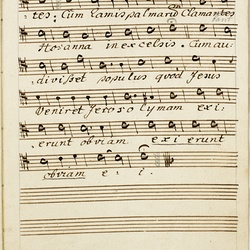 tes: Cum ramis palmarum Clamantes
Hosanna in excelsis. Cum au
divisset populus quod Jesus
Veniret Jerosolymam exi:
erunt obviam exierunt
obviam e: i.